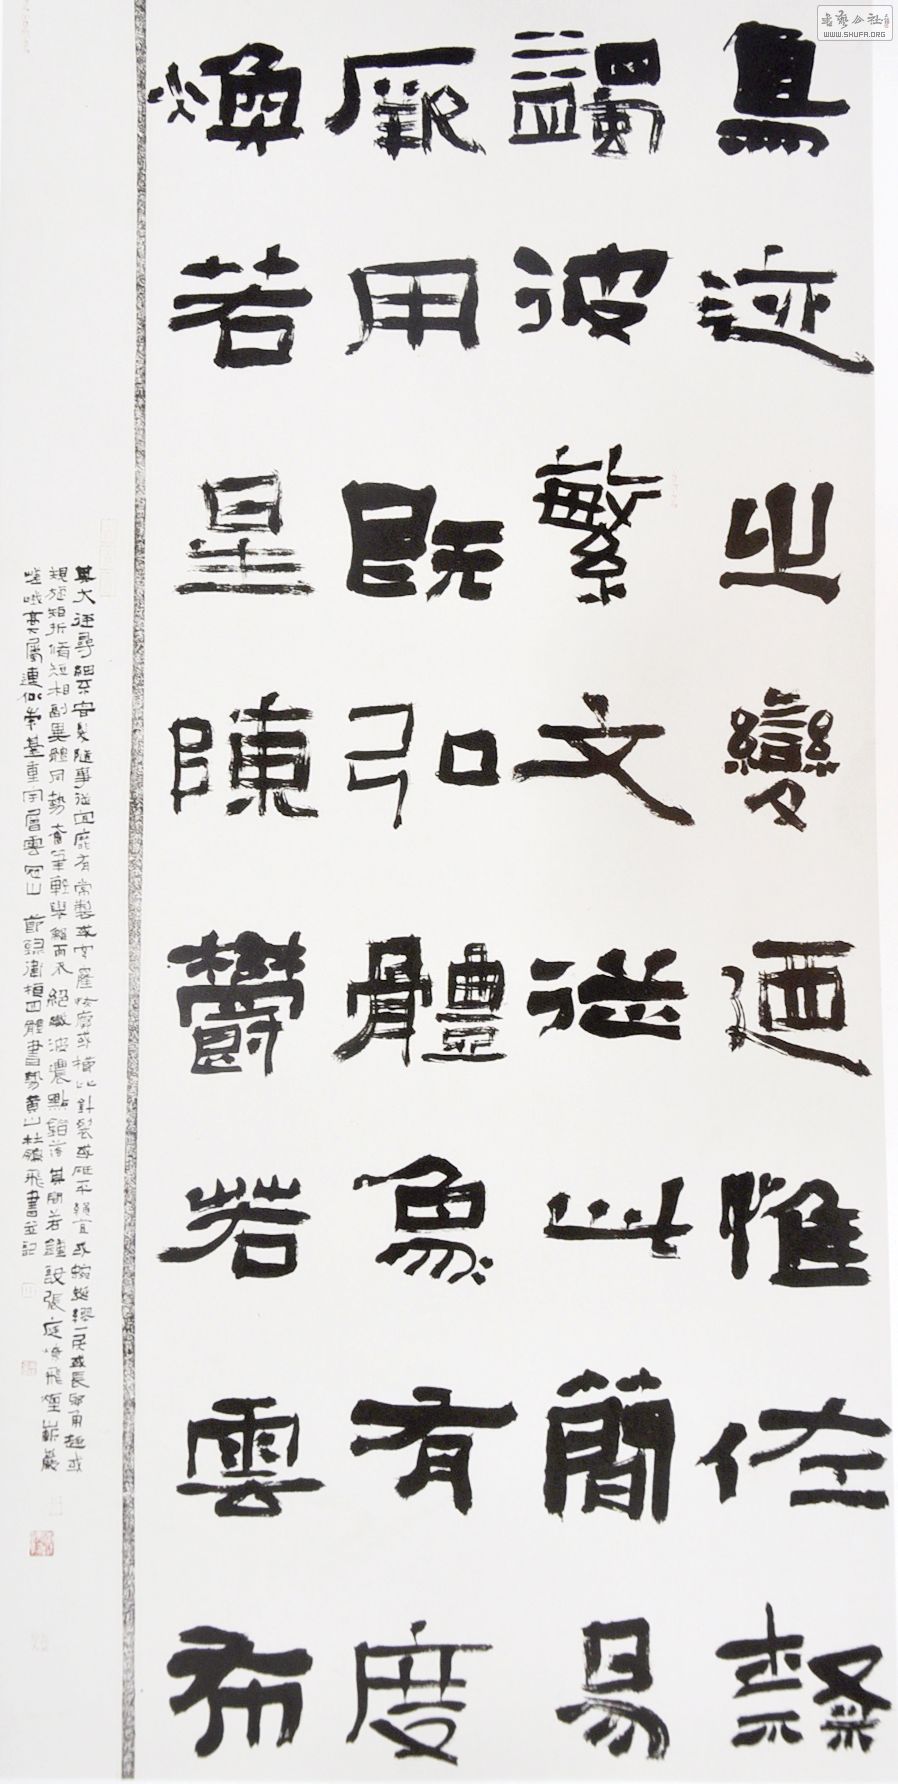 鳥迹之變迺惟佐隸
蠲彼繁文從此簡易
厥用既弘體象有度
煥若星陳鬱若雲布
其大徑尋細不容髮隨事從宜靡有常製或穹窿恢廓或櫛比針裂或砥平繩直或蜿蜒繆戾或長邪角趣或
規旋矩折脩短相副異體同勢奮筆輕舉離而不絕纖波濃點錯落其間若鐘簴設張庭燎飛煙嶄巖
嵯峨高下屬連似崇臺重宇層雲冠山 節錄衛恒四體書勢黃山杜鵬飛書並記
書藝公社
WWW.SHUFA.ORG